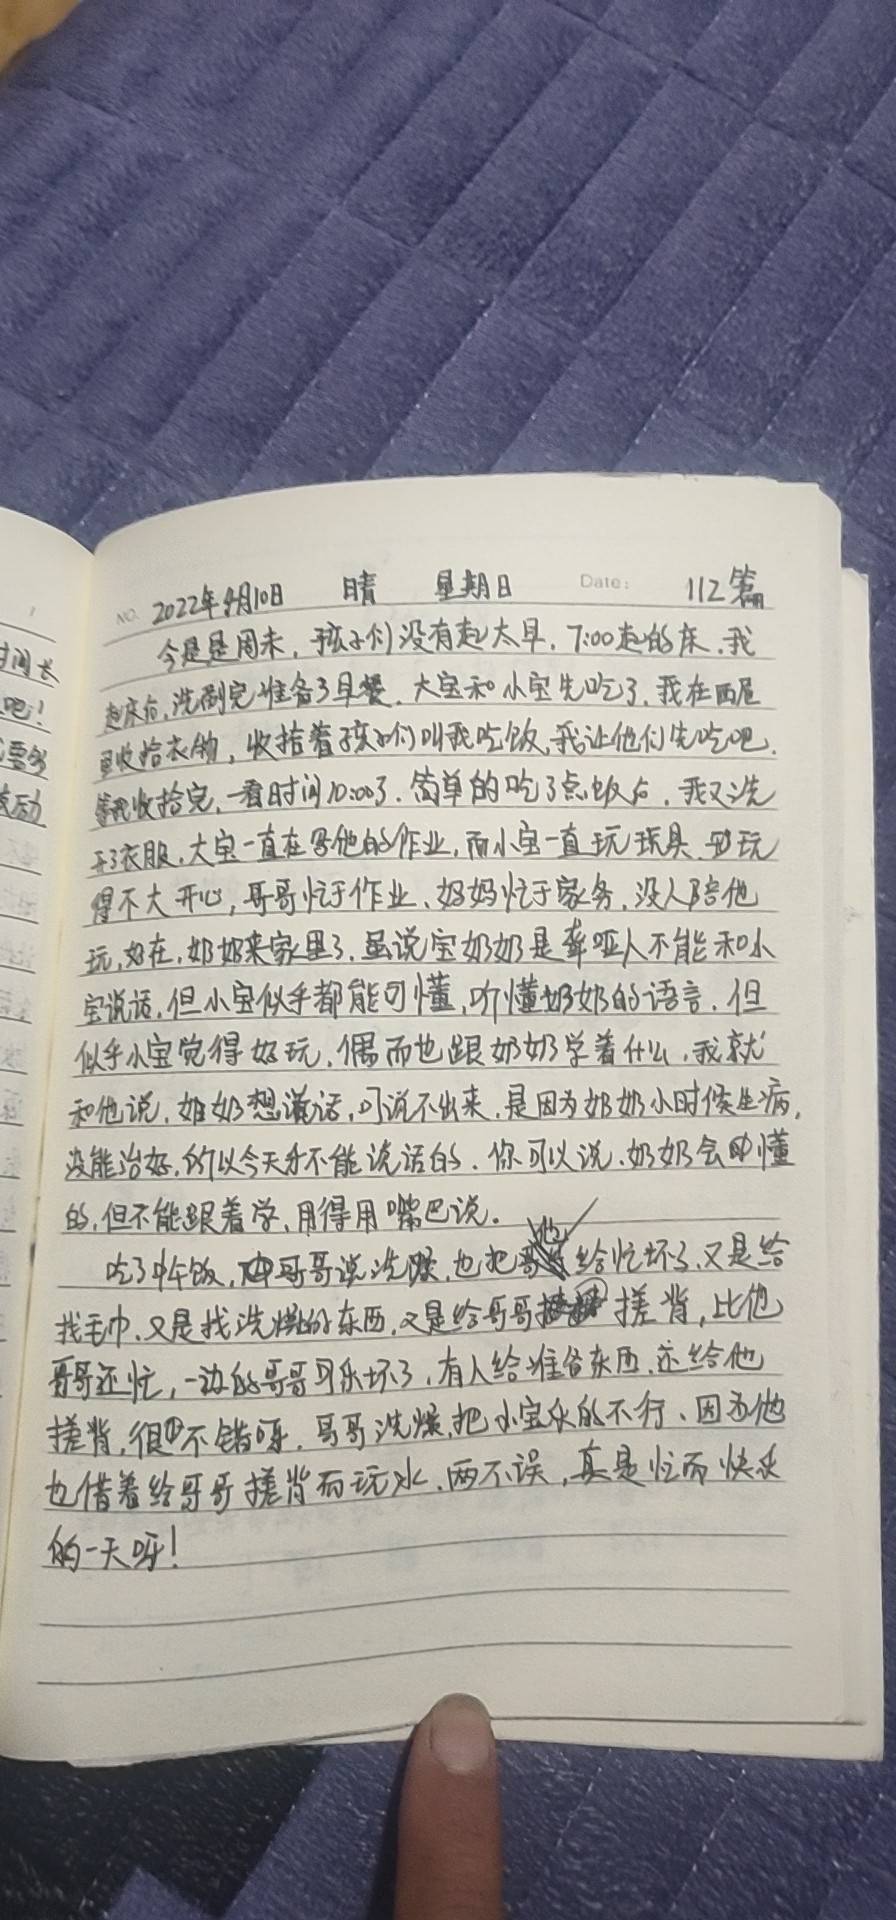 时间长
吧！
要多
鼓励
NO. 2022年4月10日 晴 星期日 Date: 112篇
今是是周末，孩子们没有起太早，7:00起的床，我
起床后，洗刷完准备了早餐，大宝和小宝先吃了，我在西屋
里收拾衣物，收拾着孩子们叫我吃饭，我让他们先吃吧，
等我收拾完，一看时间10:00了，简单的吃了点饭后，我又洗
开了衣服，大宝一直在写他的作业，而小宝一直玩玩具，玩
得不大开心，哥哥忙于作业、妈妈忙于家务，没人陪他
玩，好在，奶奶来家里了，虽说宝奶奶是聋哑人不能和小
宝说话，但小宝似乎都能听懂，听懂奶奶的语言，但
似乎小宝觉得好玩，偶而也跟奶奶学着什么，我就
和他说，奶奶想说话，可说不出来，是因为奶奶小时候生病，
没能治好，所以今天才不能说话的，你可以说，奶奶会听懂
的，但不能跟着学，用得用嘴巴说。
吃了中午饭，哥哥说洗澡，也把他给忙坏了，又是给
找毛巾，又是找洗澡的东西，又是给哥哥搓背，比他
哥哥还忙，一边的哥哥可乐坏了，有人给准备东西，还给他
搓背，很不错呀，哥哥洗澡，把小宝乐的不行、因为他
也借着给哥哥搓背而玩水，两不误，真是忙而快乐
的一天呀！